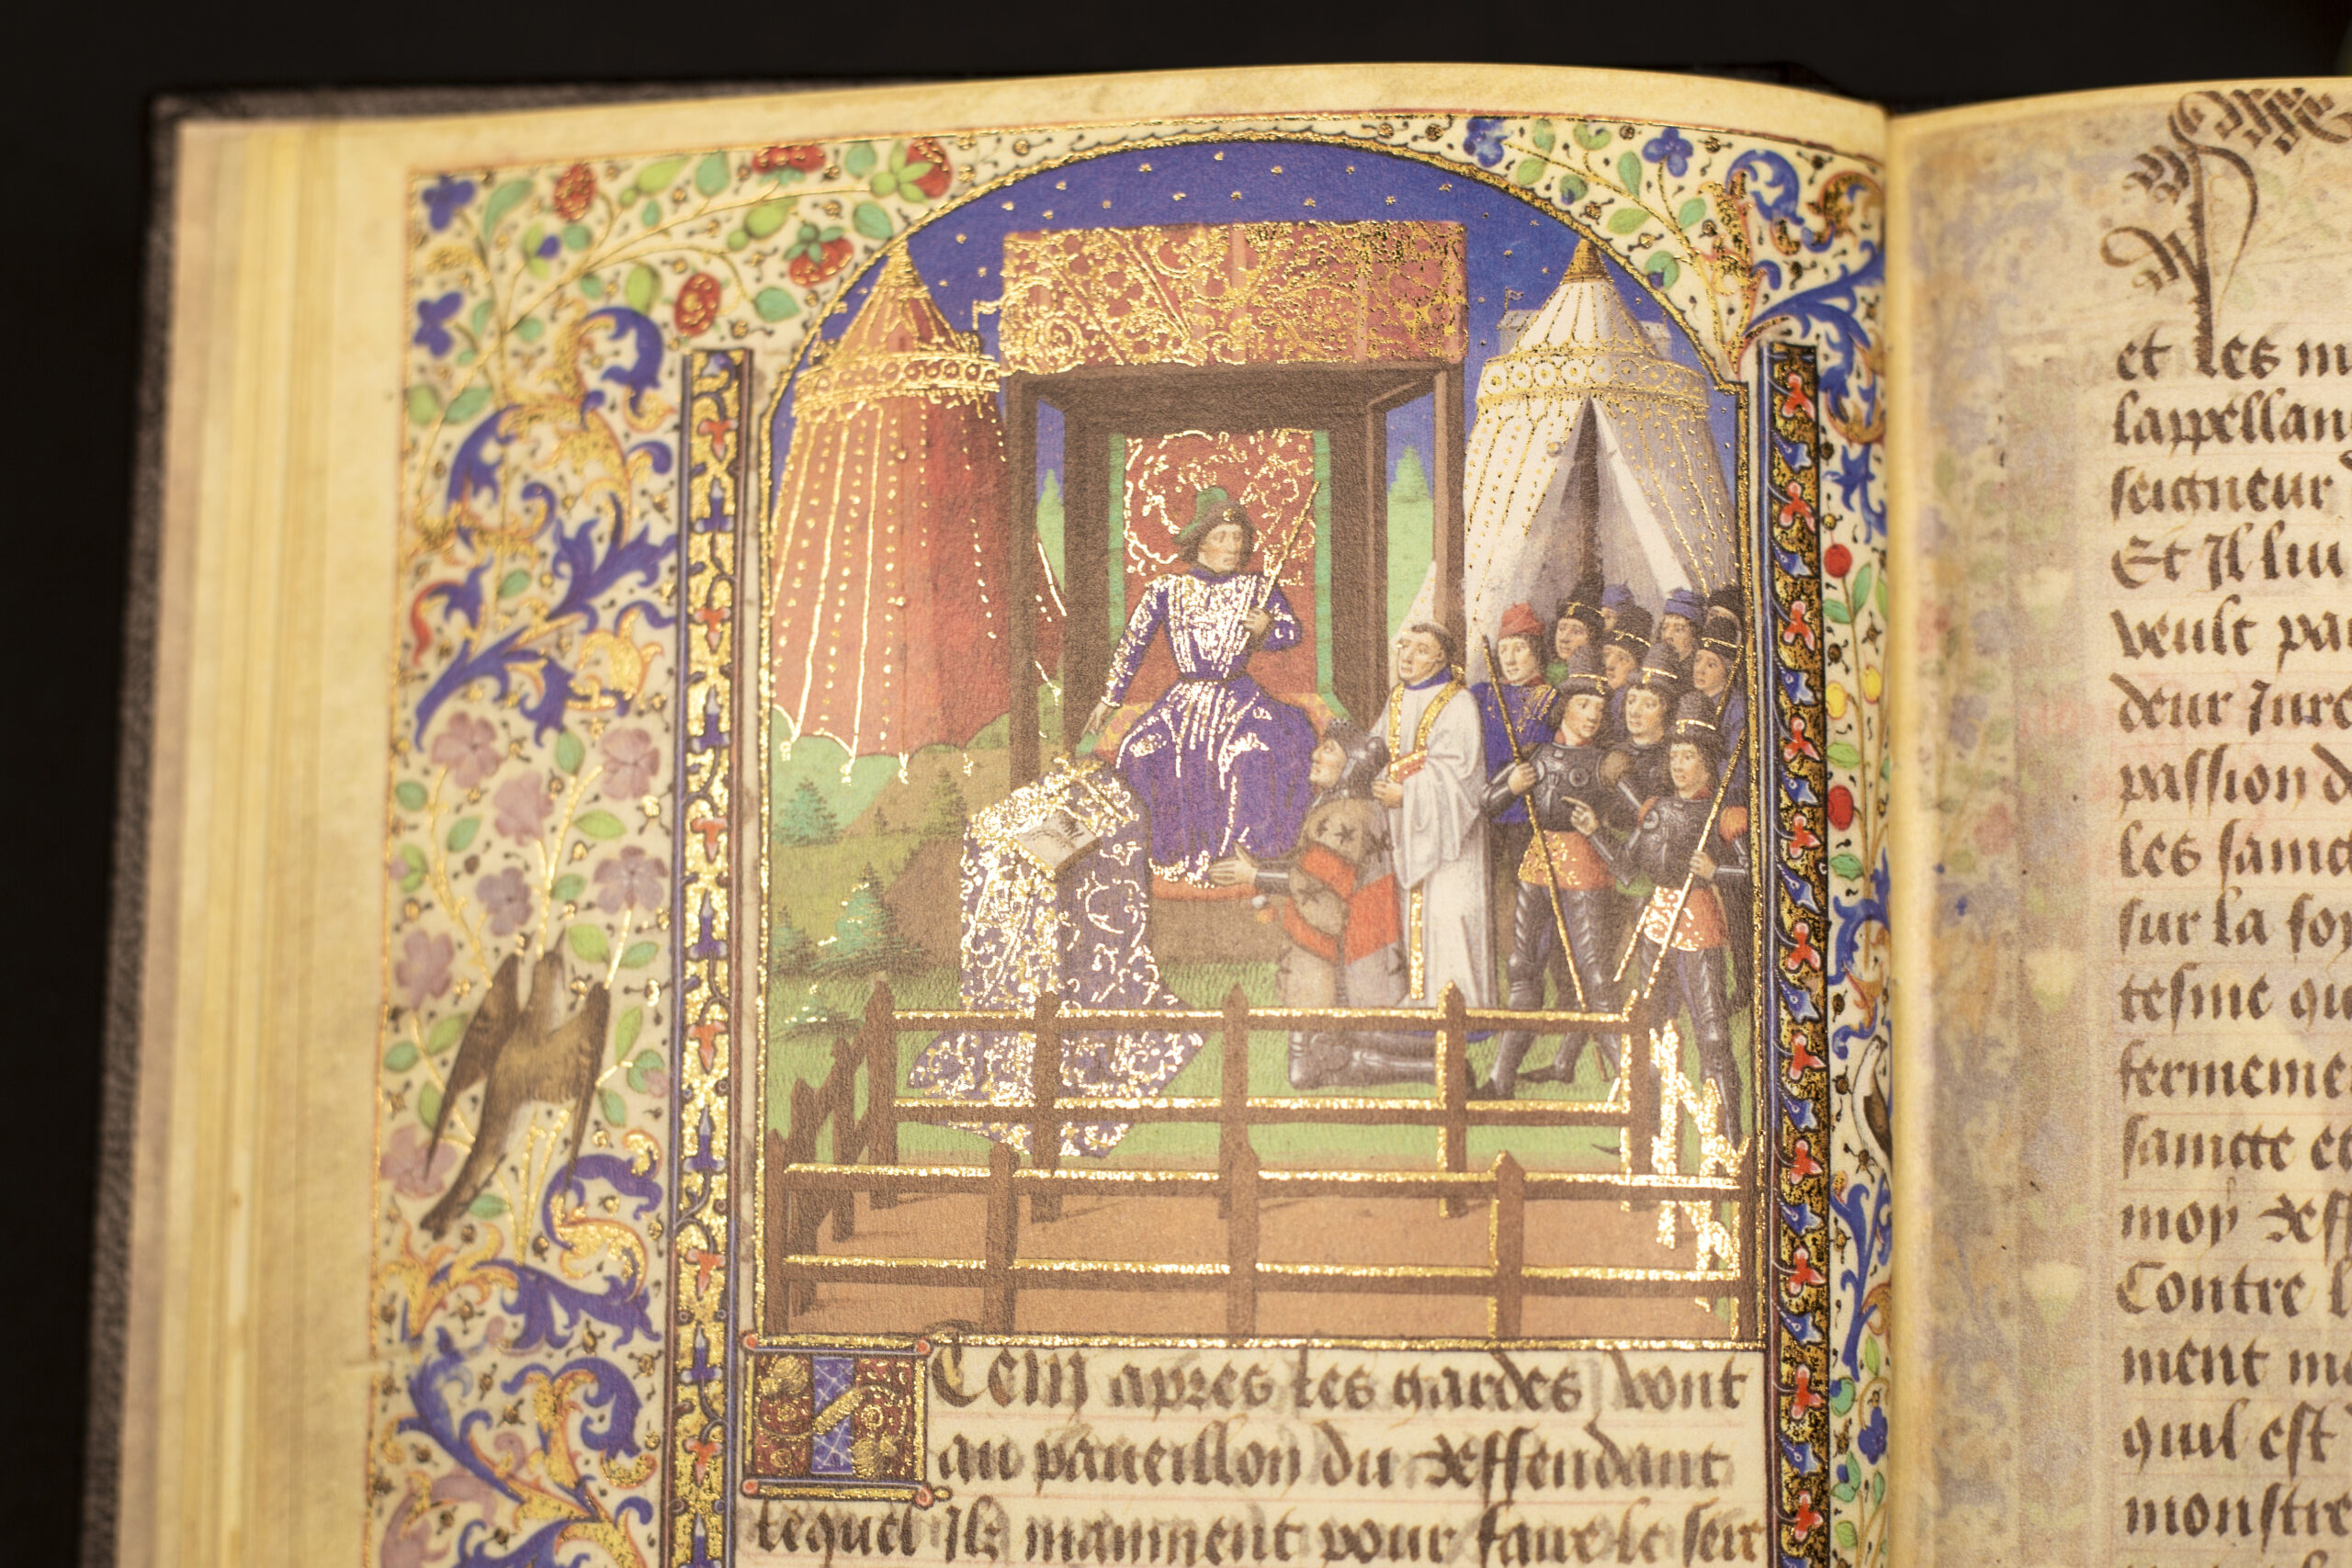 Item apres les gardes vont
au paveillon du deffendant
lequel Ilz mainnent pour faire le
et les
lappellan
seigneur
Et Il luy
veult pa
deur Jure
passion d
les sainct
sur la foy
tesme qu
fermeme
saincte e
moy deff
Contre l
ment m
quil est
monstre